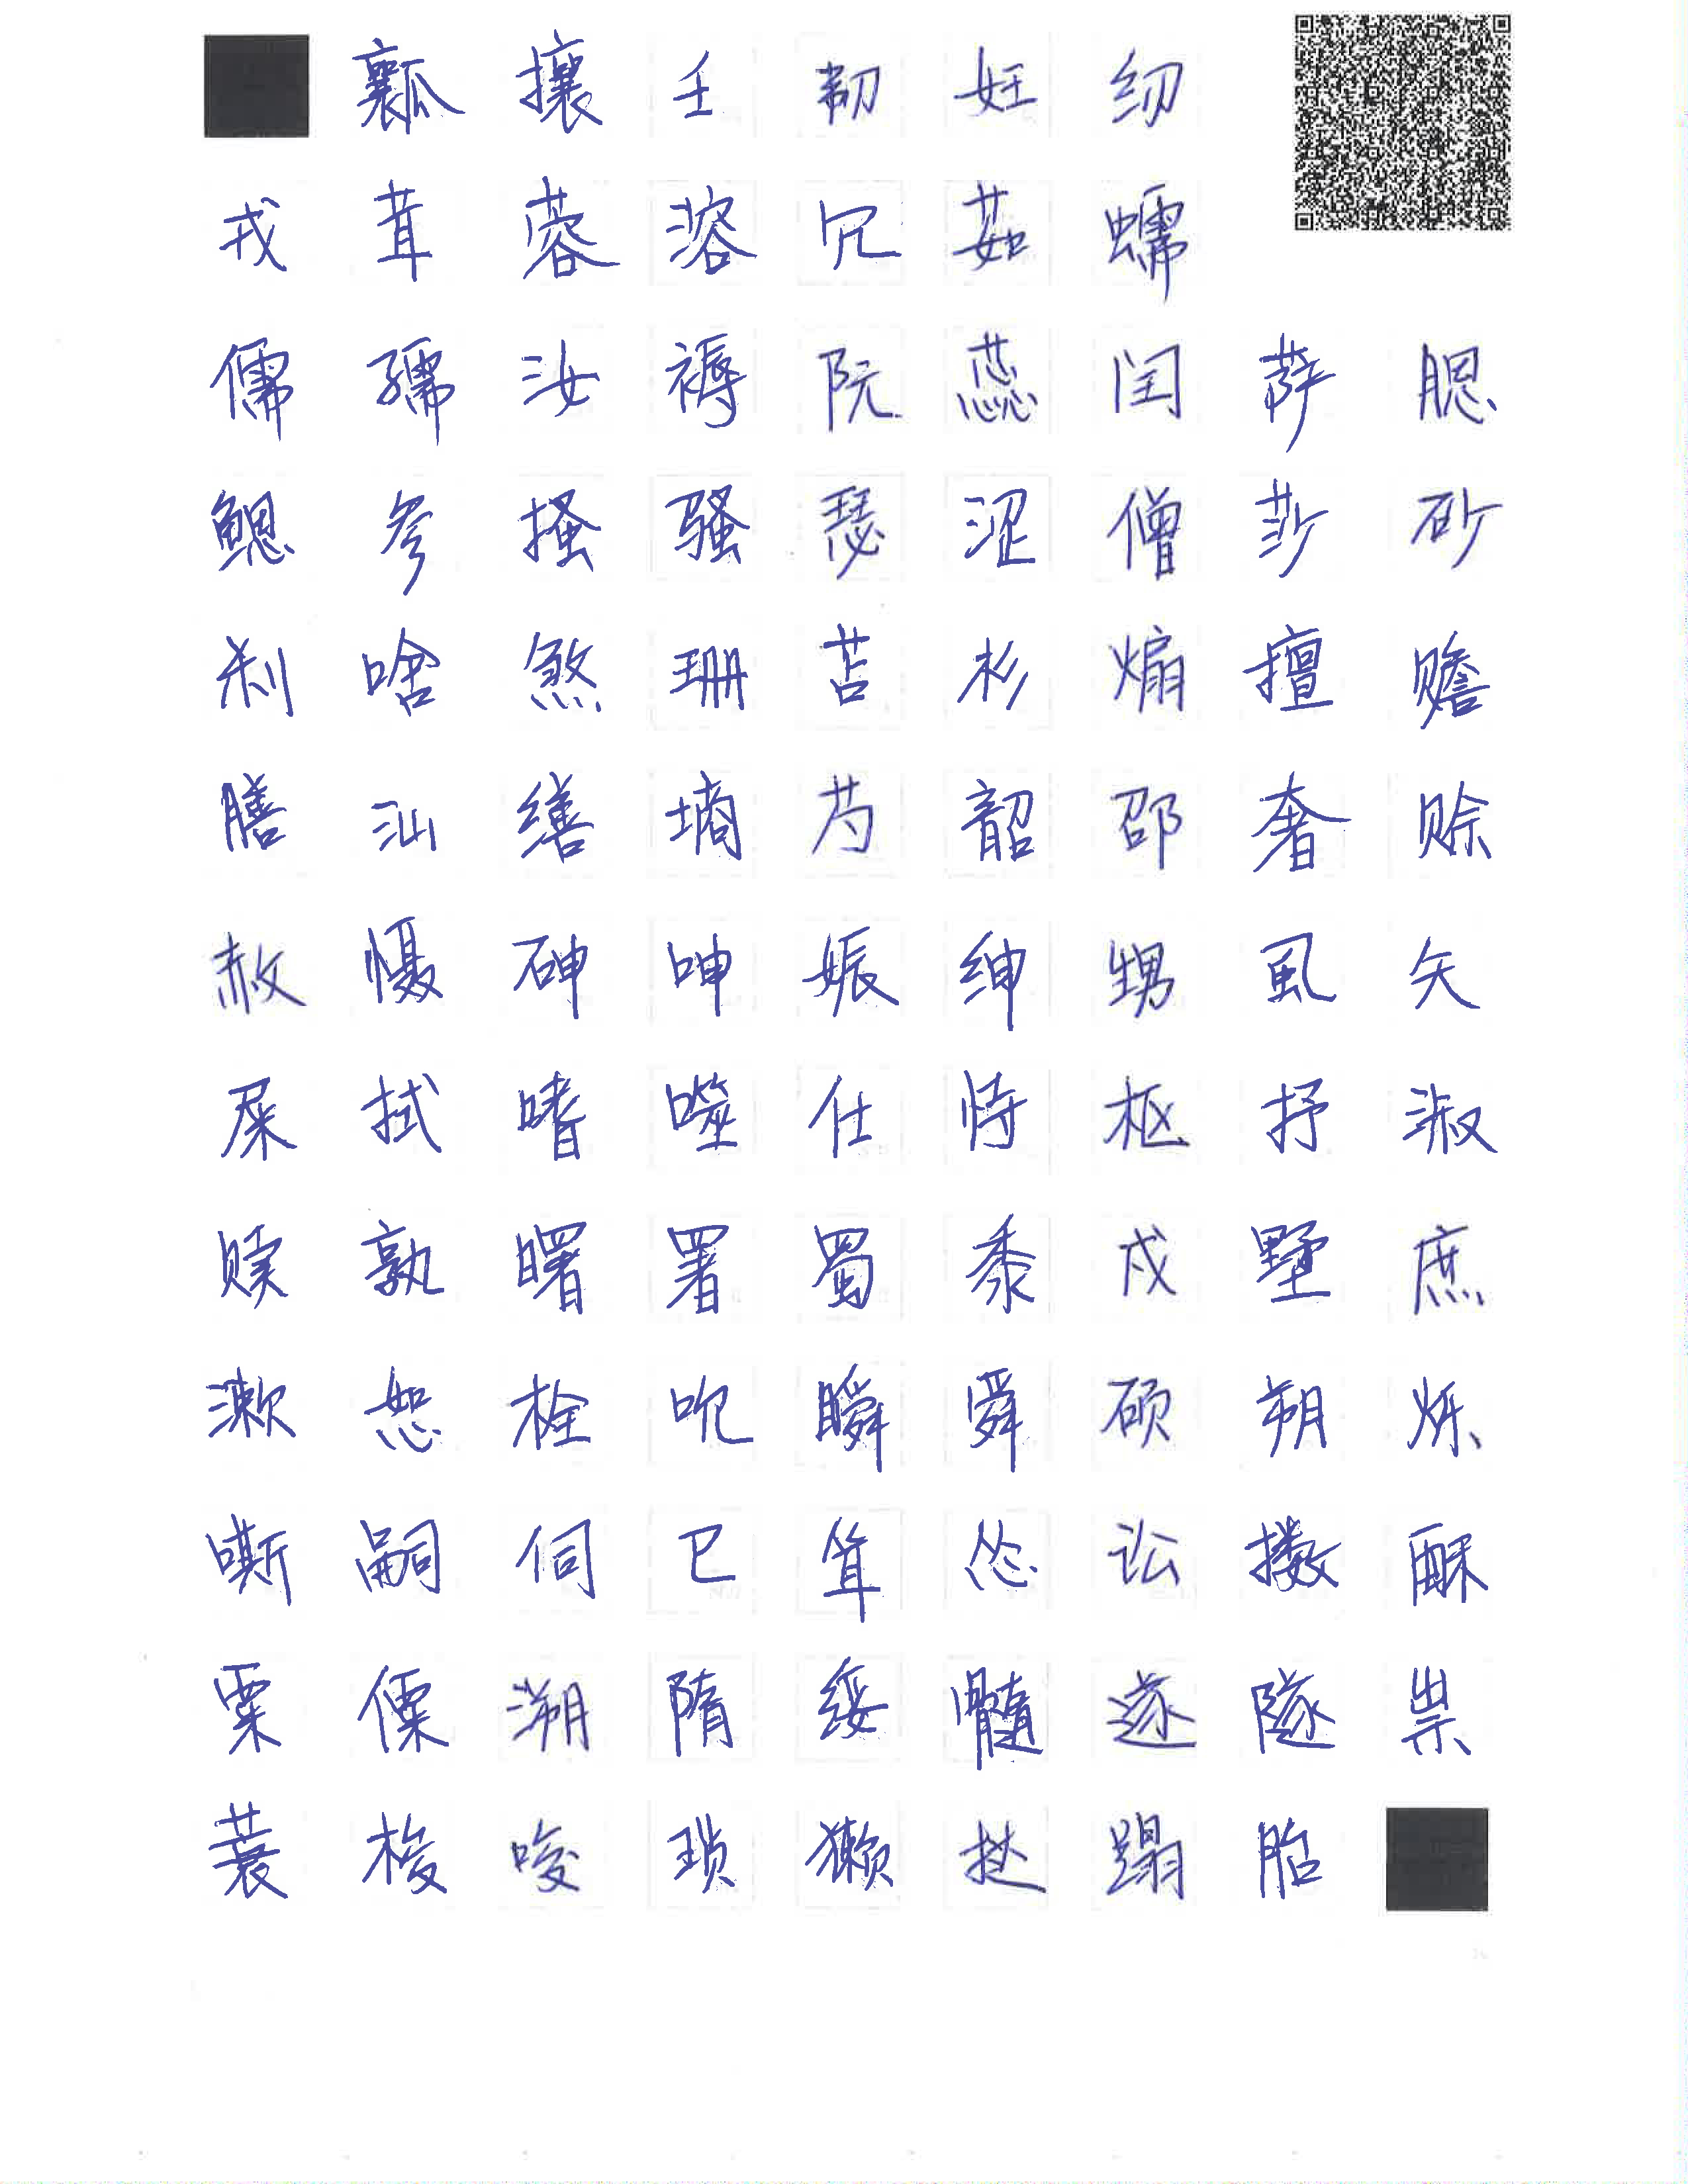 瓤攘壬韧妊纫
戎茸蓉溶冗茹蠕
儒孺汝褥阮蕊闰萨腮
鳃叁搔骚瑟涩僧莎砂
刹啥煞珊苫杉煽擅赡
膳汕缮墒芍韶邵奢赊
赦慑砷呻娠绅甥虱矢
屎拭嗜噬仕恃枢抒淑
赎孰曙署蜀黍戍墅庶
漱恕栓吮瞬舜硕朔烁
嘶嗣伺巳耸怂讼擞酥
粟傈溯隋绥髓遂隧祟
蓑梭唆琐獭挞蹋胎